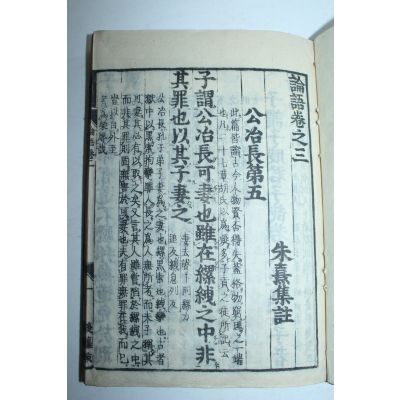 論語卷之三
朱熹集註
公冶長第五
此篇皆論古今人物賢否得失蓋格物窮理之一端
也凡二十七章胡氏以爲疑多子貢之徒所記云
子謂公冶長可妻也雖在縲絏之中非
其罪也以其子妻之
妻去聲下同縲力
追反絏息列反
公冶長孔子弟子妻爲之妻也縲黑索也絏攣也古者
獄中以黑索拘攣罪人長之爲人無所考而夫子稱其
可妻其必有以取之矣又言其人雖嘗陷於縲絏之中
而非其罪則固無害於可妻也夫有罪無罪在我而已
豈以自外至
者爲榮辱哉